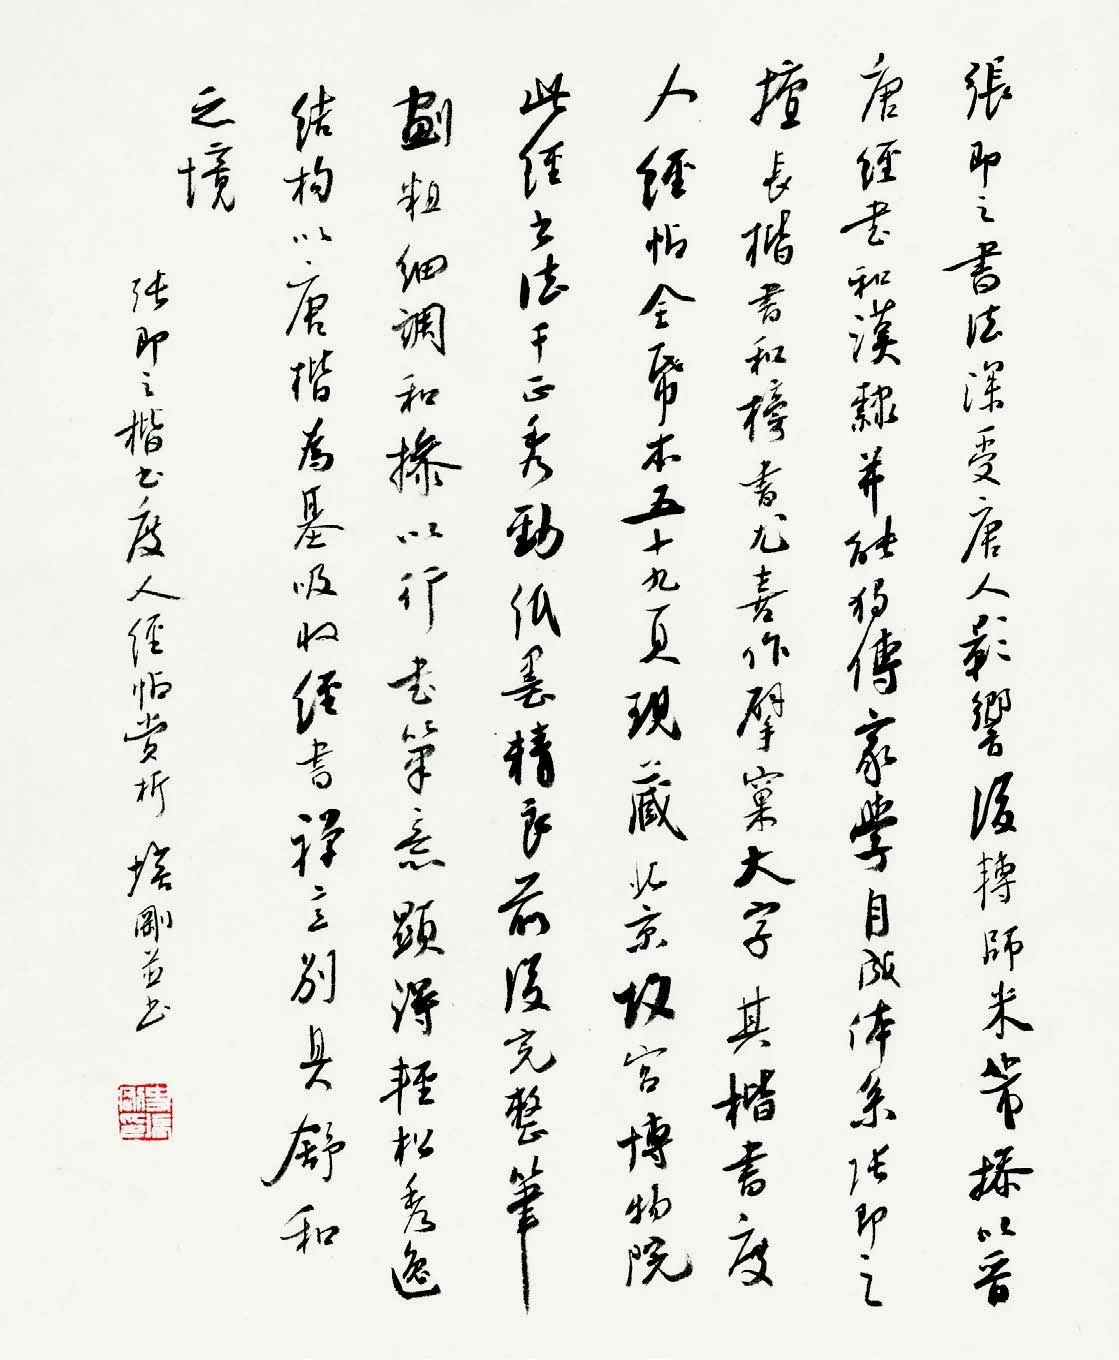 張即之書法深受唐人影響後轉師米芾摻以晉
唐經書和漢隸并能獨傳家學自成体系張即之
擅長楷書和榜書尤喜作擘窠大字其楷書度
人經帖全帋本五十九頁現藏北京故宮博物院
此經書法平正秀勁紙墨精良前後完整筆
劃粗細調和摻以行書筆意顯得輕松秀逸
結构以唐楷為基吸收經書禅意別具舒和
之境
張即之楷書度人經帖賞析 培剛並書